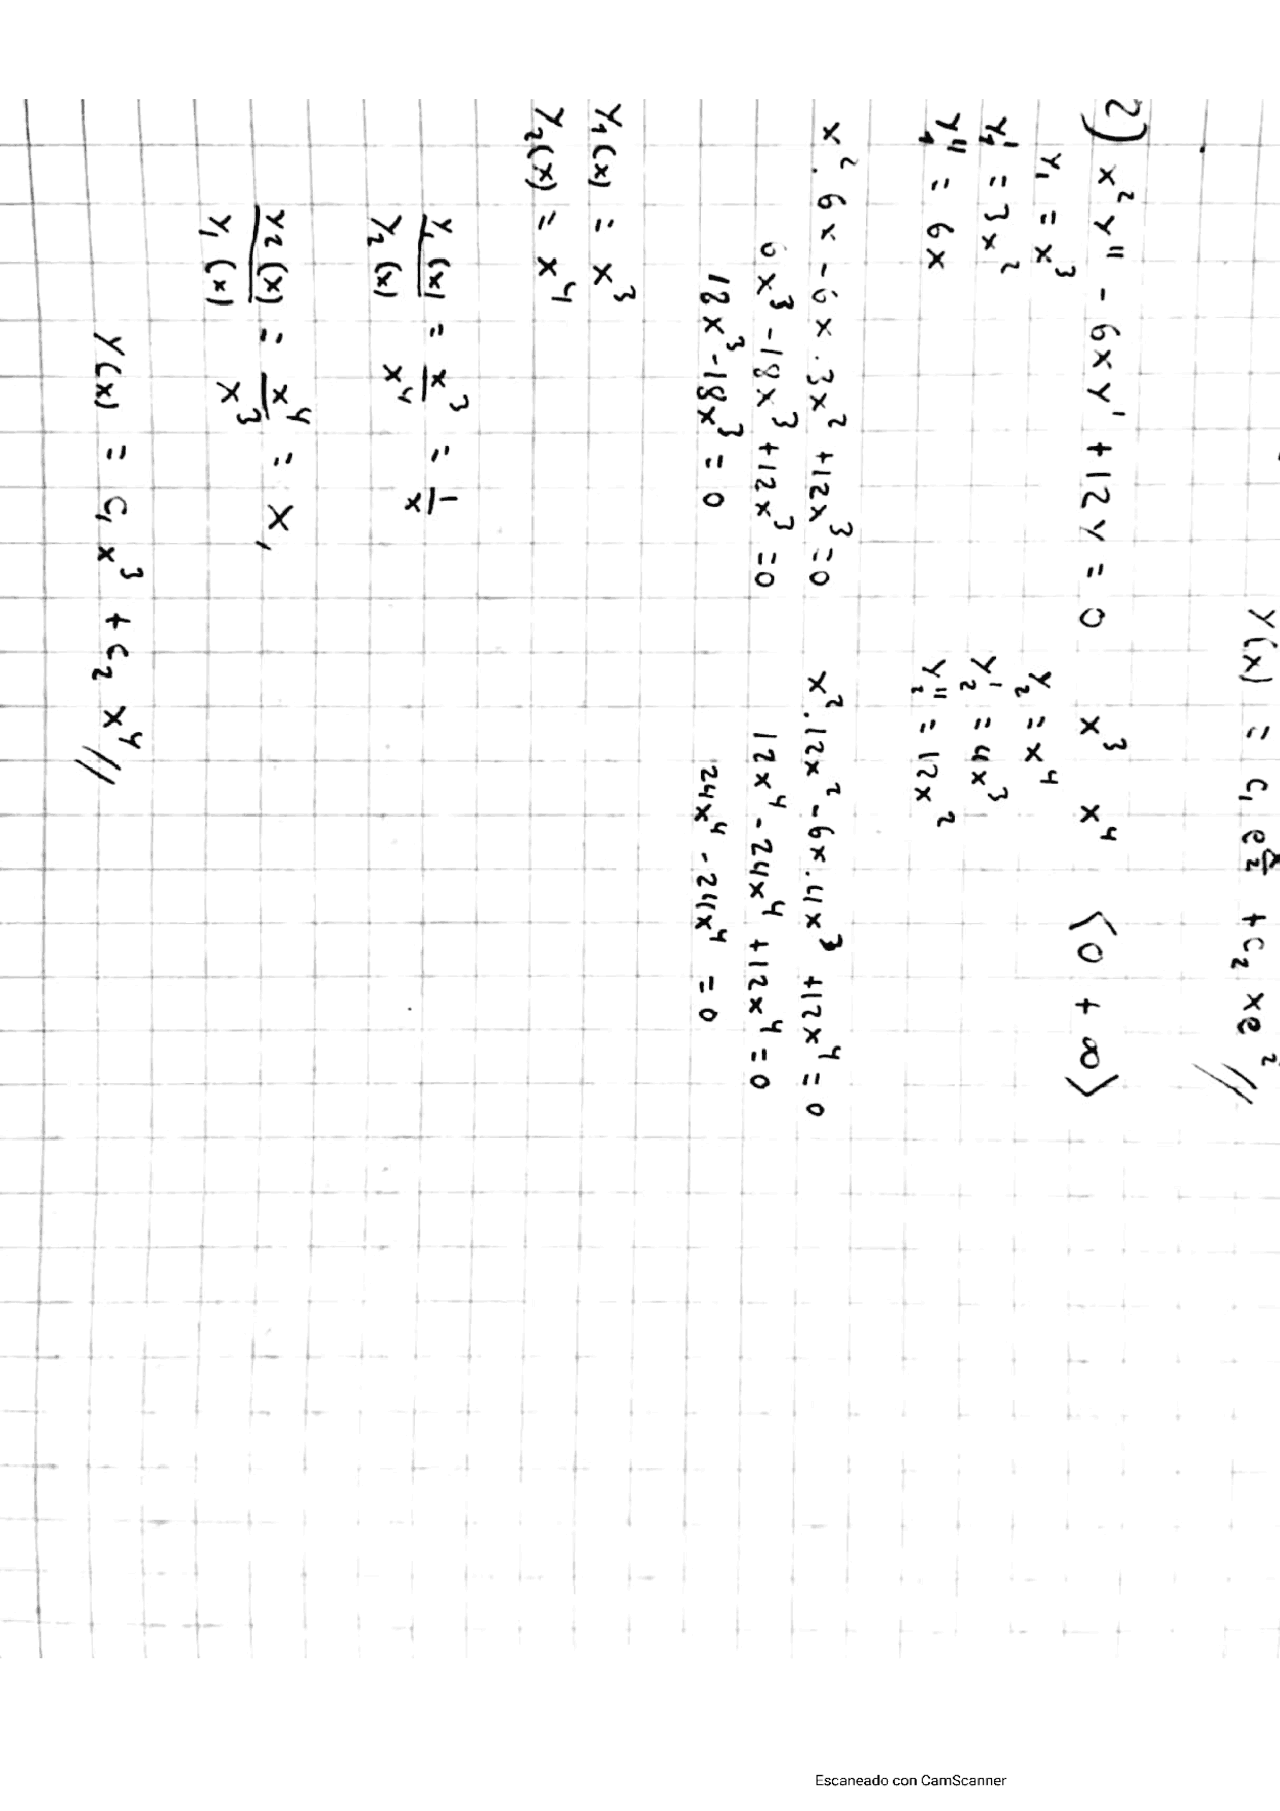 Y(x) = C₁ e^(x/2) + C₂ xe²//
2) x²y'' - 6xy' + 12y = 0 x³ x⁴ ⟨0 + ∞⟩
y₁ = x³ y₂ = x⁴
y₁' = 3x² y₂' = 4x³
y₁'' = 6x y₂'' = 12x²
x². 6x - 6x . 3x² + 12x³ = 0 x². 12x² - 6x . 4x³ + 12x⁴ = 0
6x³ - 18x³ + 12x³ = 0 12x⁴ - 24x⁴ + 12x⁴ = 0
18x³ - 18x³ = 0 24x⁴ - 24x⁴ = 0
Y₁(x) = x³
Y₂(x) = x⁴
Y₁(x)/Y₂(x) = x³/x⁴ = 1/x
Y₂(x)/Y₁(x) = x⁴/x³ = x,
Y(x) = C₁x³ + C₂x⁴//
Escaneado con CamScanner